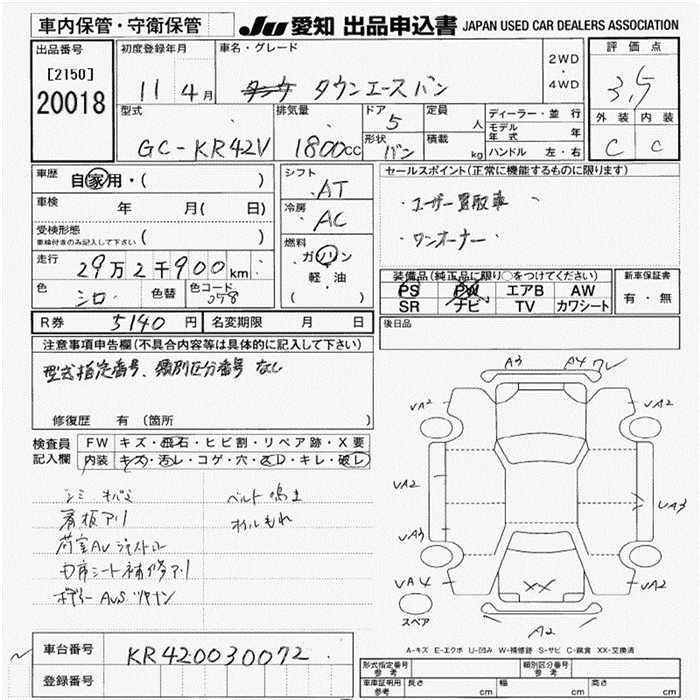 車内保管・守衛保管
JU 愛知 出品申込書 JAPAN USED CAR DEALERS ASSOCIATION
出品番号
[2150]
20018
初度登録年月
11 4月
車名・グレード
タウンエースバン
2WD
・
4WD
評価点
3,5
外装 内装
C C
型式
GC-KR42V
排気量
1800cc
ドア
5
形状
バン
定員
人
積載
kg
ディーラー・並行
モデル年式 年
ハンドル 左・右
車歴
自家用・( )
車検
年 月( 日)
受検形態
車検付きのみ記入して下さい ( )
走行
29万2千900km
色
シロ
色替
色コード
058
シフト
AT
冷房
AC
燃料
ガソリン
軽・油
( )
セールスポイント(正常に機能するものに限ります)
・ユーザー買取車
・ワンオーナー
装備品(純正品に限り○をつけてください)
PS PW エアB AW
SR ナビ TV カワシート
新車保証書
有・無
R券 5140円
名変期限 月 日
後日品
注意事項申告欄(不具合内容等は具体的に記入して下さい)
型式指定番号、類別区分番号 なし
修復歴 有 (箇所 )
検査員記入欄
FW キズ・飛石・ヒビ割・リペア跡・X要
内装 キズ・汚レ・コゲ・穴・スレ・キレ・破レ
シミ キバミ
看板アリ
内席シート補修アリ
ベルト鳴き
オイルもれ
A3 A4 ワレ
VA2 VA2
VA2 VA3
VA3
VA4 VA2
XX
A2
スペア
A-キズ E-エクボ U-凹み W-補修跡 S-サビ C-腐食 XX-交換済
車台番号
KR420030072
登録番号
型式指定番号 参考
類別区分番号 参考
車庫証明用 参考
長さ cm
幅 cm
高さ cm